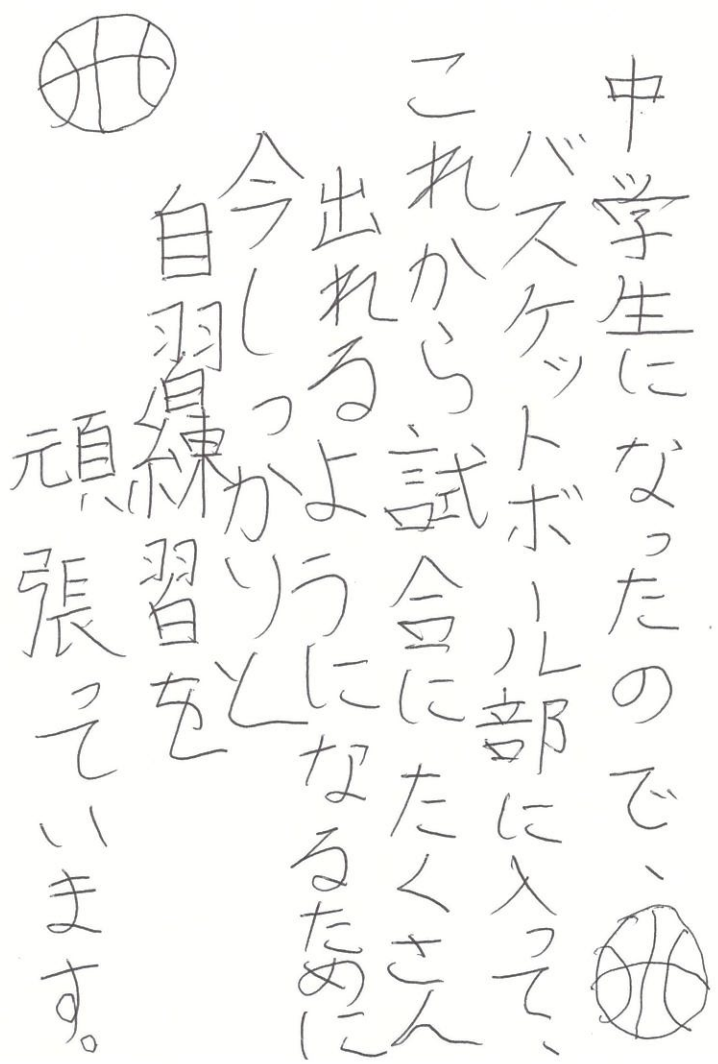 中学生になったので、
バスケットボール部に入って、
これから試合にたくさん
出れるようになるために
今しっかりと
自習練習を
頑張っています。